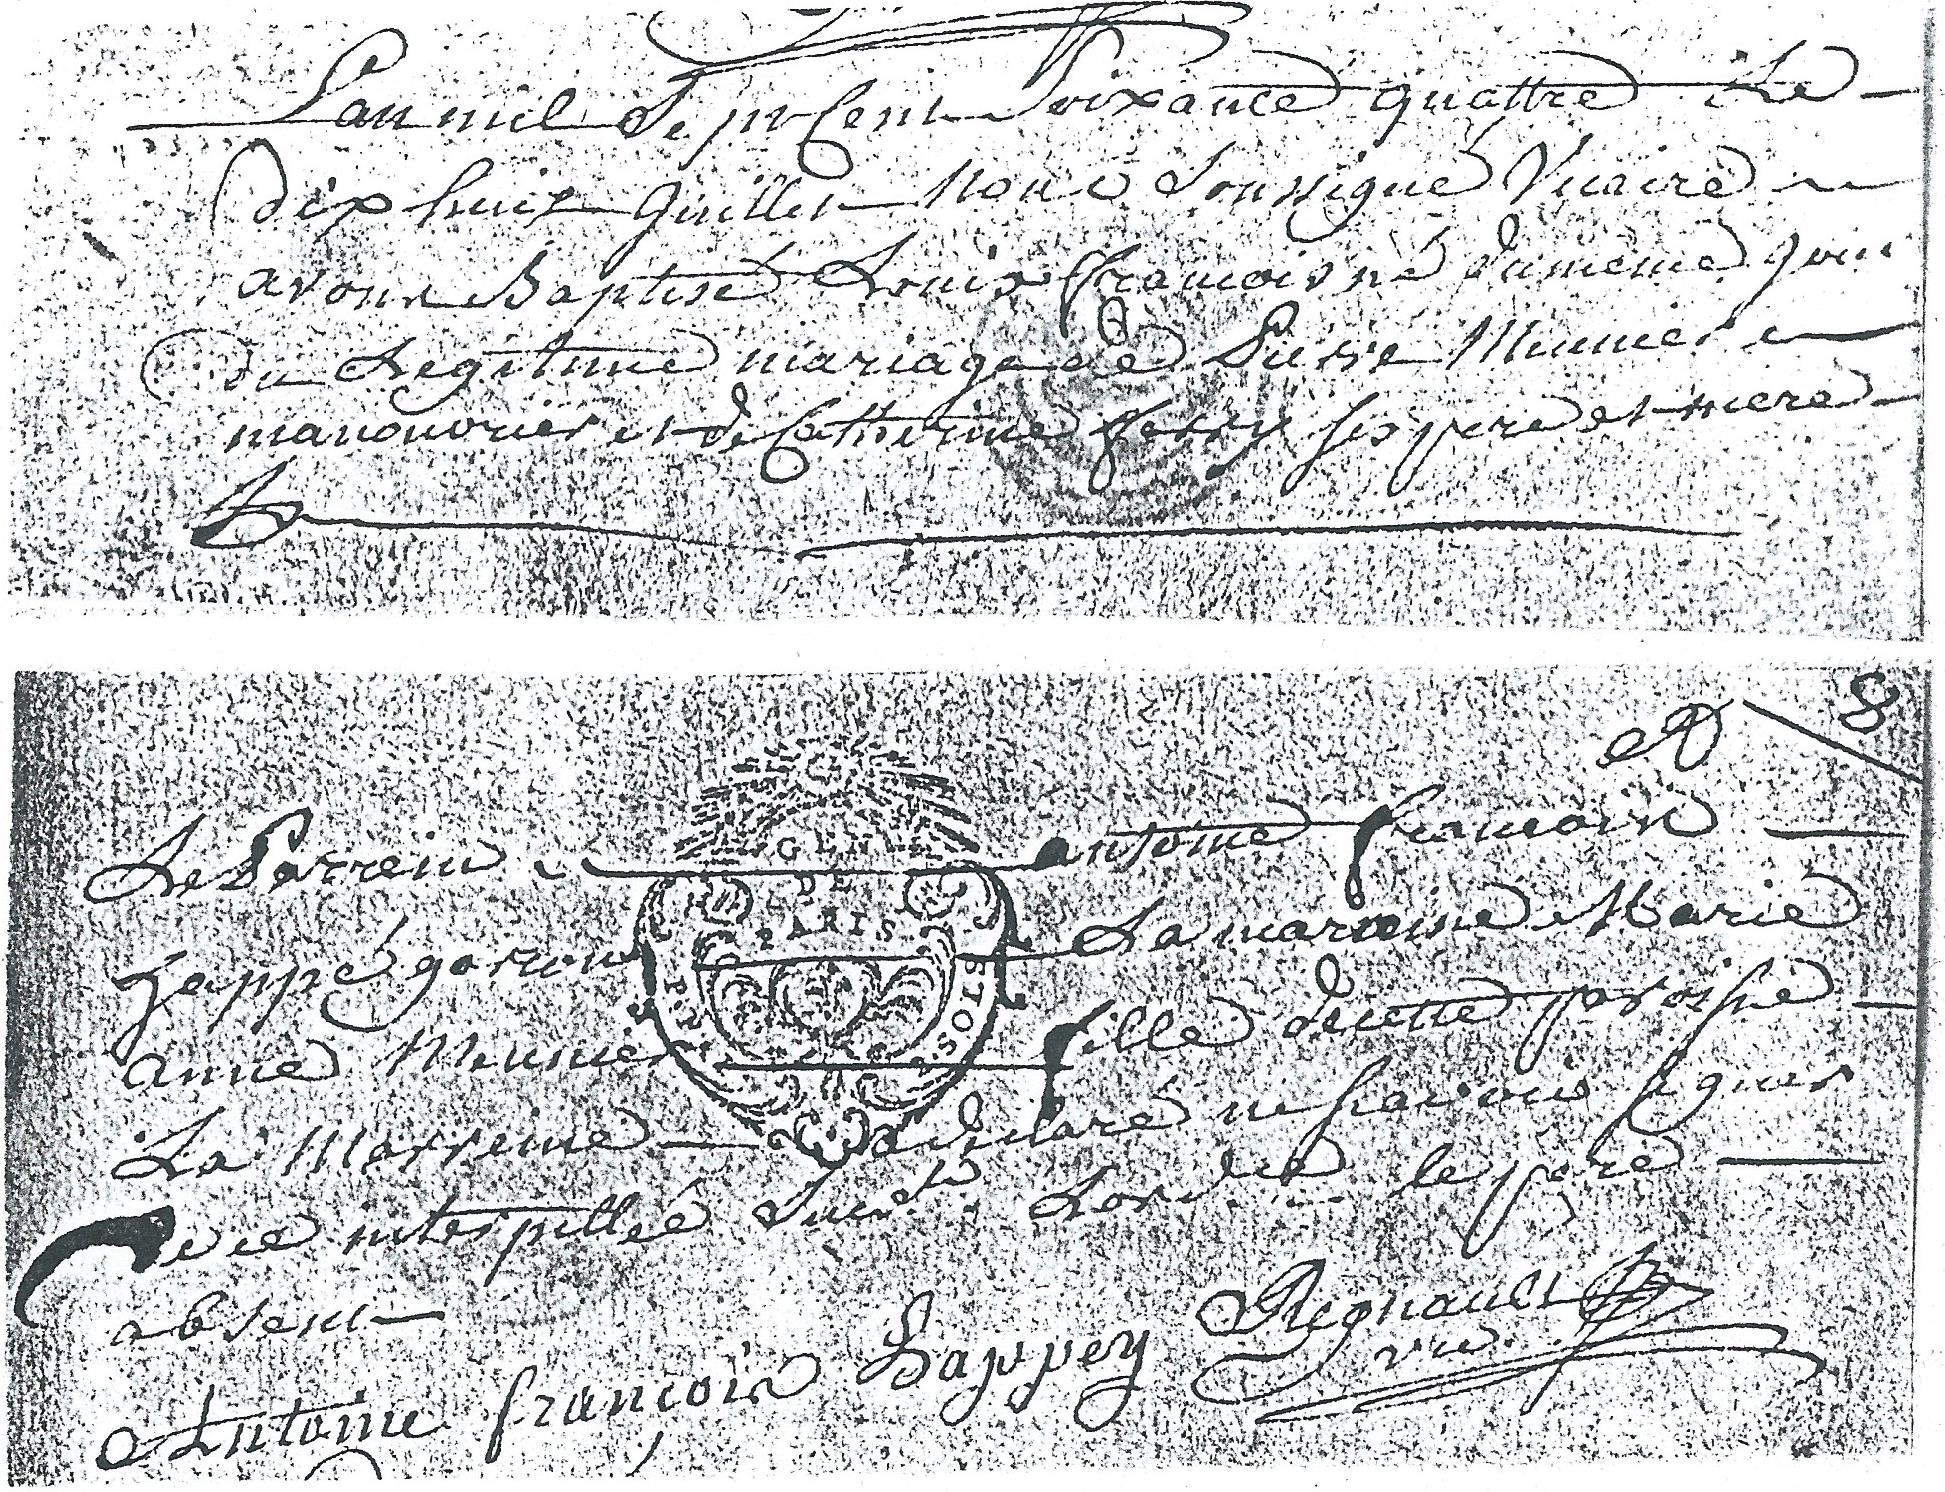 L'an mil Sept Cent Soixance quattre Le
dix huit Juillet Nous Soussigné Vicaire
avons Baptisé Louis François né du meme jour
du Legitime mariage de Pierre Munier
manouvrier et de Catherine ferry ses pere et mere
A 8
Le Parrein antoine francois
Zappé garçon La marreine Marie
anne Meunier fille de cette paroisse
La Marreine a declaré ne scavoir signer
de ce interpellée Suivt Lordce le pere
absent
Antoine françois Zappey Regnault
vic.
GEN
DE
PARIS
SOLS